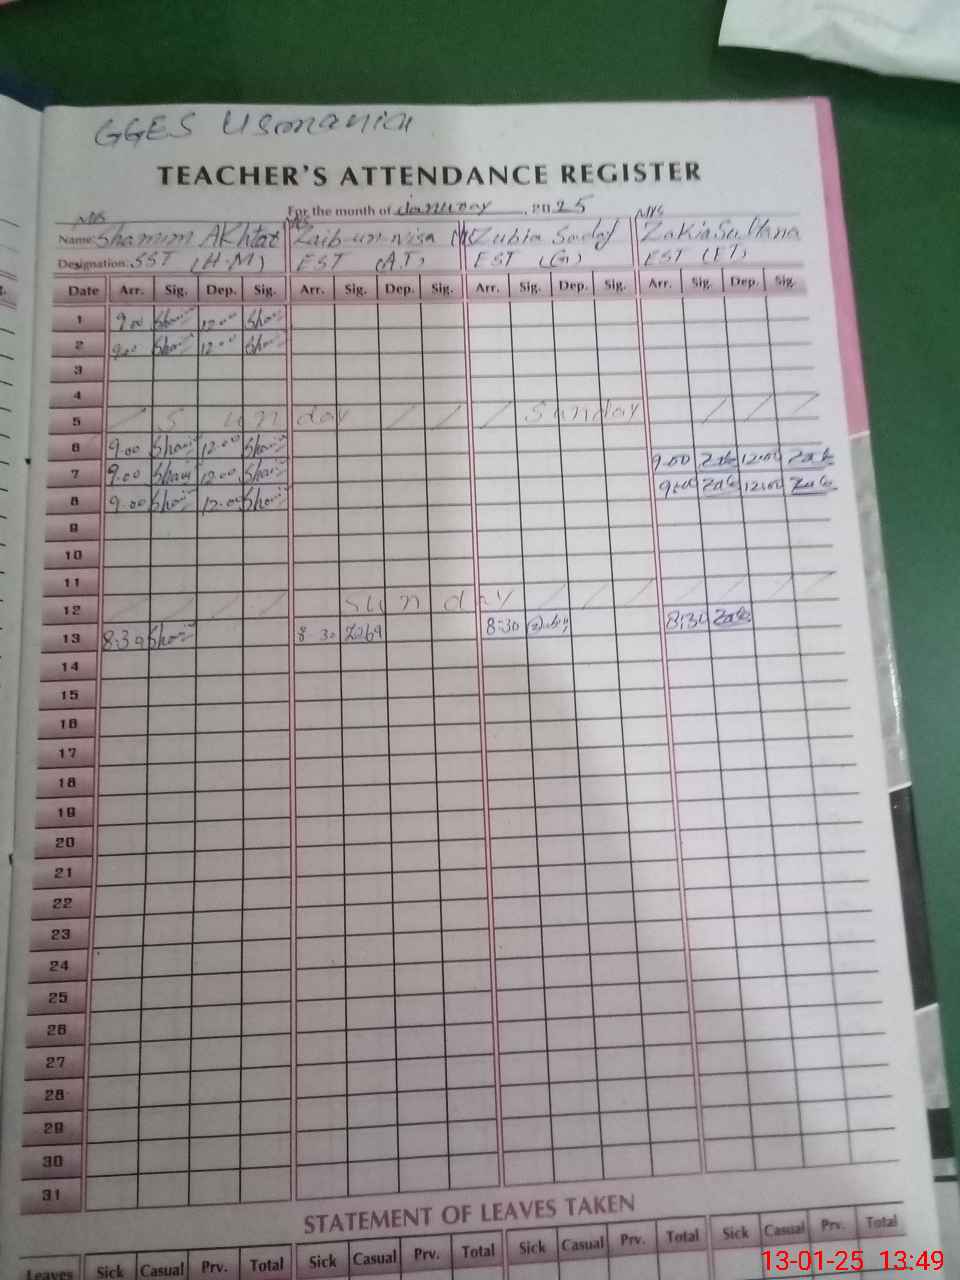 GGES Usmania
TEACHER'S ATTENDANCE REGISTER
For the month of January 2025
Mrs Mrs Mrs
Name: Shamim Akhtar Zaib-un-Nisa Zubia Sadaf Zakia Sultana
Designation: SST (H.M) EST (A.T) EST (G) EST (PT)
Date Arr. Sig. Dep. Sig. Arr. Sig. Dep. Sig. Arr. Sig. Dep. Sig. Arr. Sig. Dep. Sig.
1 9.00 Sham 12.00 Sham
2 9.00 Sham 12.00 Sham
3
4
5 Sunday Sunday
6 9.00 Sham 12.00 Sham
7 9.00 Sham 12.00 Sham 9.00 Zak 12:00 Zak
8 9.00 Sham 12.00 Sham 9:00 Zak 12:00 Zak
9
10
11
12 Sunday
13 8:30 Sham 8 30 8:30 8:30 Zak
14
15
16
17
18
19
20
21
22
23
24
25
26
27
28
29
30
31
STATEMENT OF LEAVES TAKEN
Leaves Sick Casual Prv. Total Sick Casual Prv. Total Sick Casual Prv. Total Sick Casual Prv. Total
13-01-25 13:49